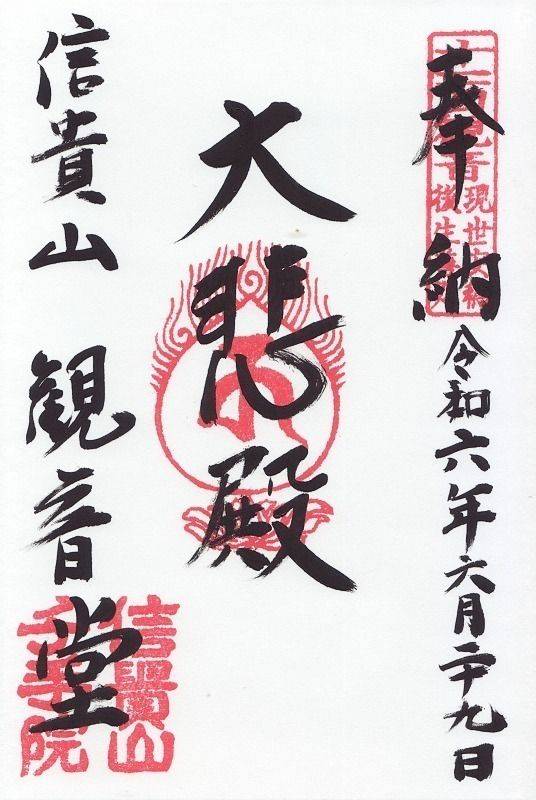 奉納 令和六年六月二十九日
大悲殿
信貴山 観音堂
信貴山
千手院